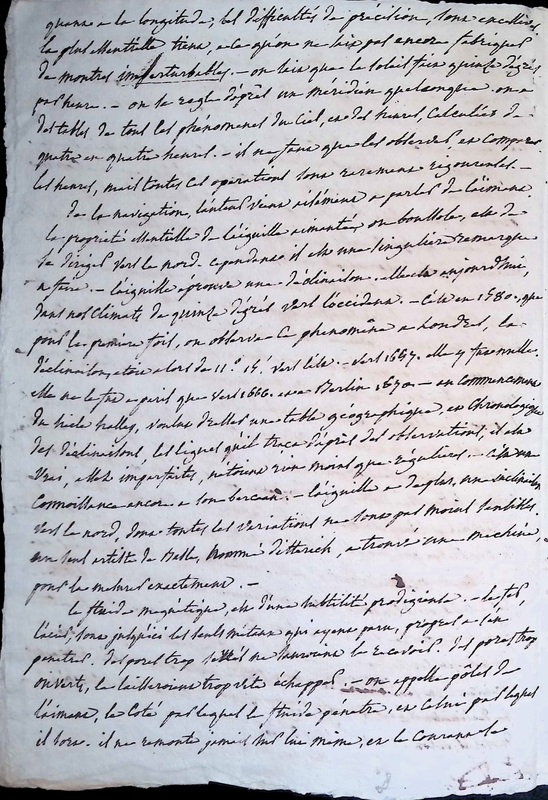 quant a la longitude, les difficultés de précision, sont excessives
la plus essentielle tient, a ce qu'on ne sait pas encore fabriquer
de montres imperturbables. - on sait que le soleil fait quinze degrés
par heure. - on se regle d'après un méridien quelconque. on a
des tables de tous les phénomenes du ciel, et des heures, calculées de
quatre en quatre heures. - il ne faut que les observer, et comparer
les heures, mais toutes ces operations sont rarement rigoureuses. -
de la navigation, l'auteur vient aisément a parler de l'aimant
la proprieté essentielle de l'aiguille aimantée, ou boussole, est de
se diriger vers le nord. cependant il est une singuliere remarque
a faire. - l'aiguille éprouve une déclinaison. elle est aujourd'hui,
dans nos climats de quinze degrés vers l'occident. - c'est en 1580. que
pour la premiere fois, on observa ce phénomène a Londres, la
déclinaison, etoit alors de 11.° 15', vers l'est. - vers 1657. elle y fut nulle.
elle ne le fut a paris que vers 1666. et a Berlin 1670. - au commencement
du siecle halley, voulut dresser une table géographique, et chronologique
des déclinaisons, les lignes qu'il traça d'après des observations, il est
vrai, assez imparfaites, ne sont rien moins que régulieres. - c'est une
connoissance encore a son berceau. - l'aiguille a de plus, une inclinaison
vers le nord, dont toutes les variations ne sont pas moins sensibles.
un seul artiste de Basle, nommé ditterich, a trouvé une machine,
pour la mesurer exactement. -
Le fluide magnétique, est d'une subtilité, prodigieuse. - le fer,
l'acier, sont jusqu'ici les seuls métaux qui ayent paru, propres a s'en
penetrer. des pores trop serrés ne sauroient le recevoir. des pores trop
ouverts, le laisseroient trop vite échapper. - on appelle pôles de
l'aimant, le coté par lequel le fluide pénetre, et celui par lequel
il sort. il ne remonte jamais sur lui même, et le courant se